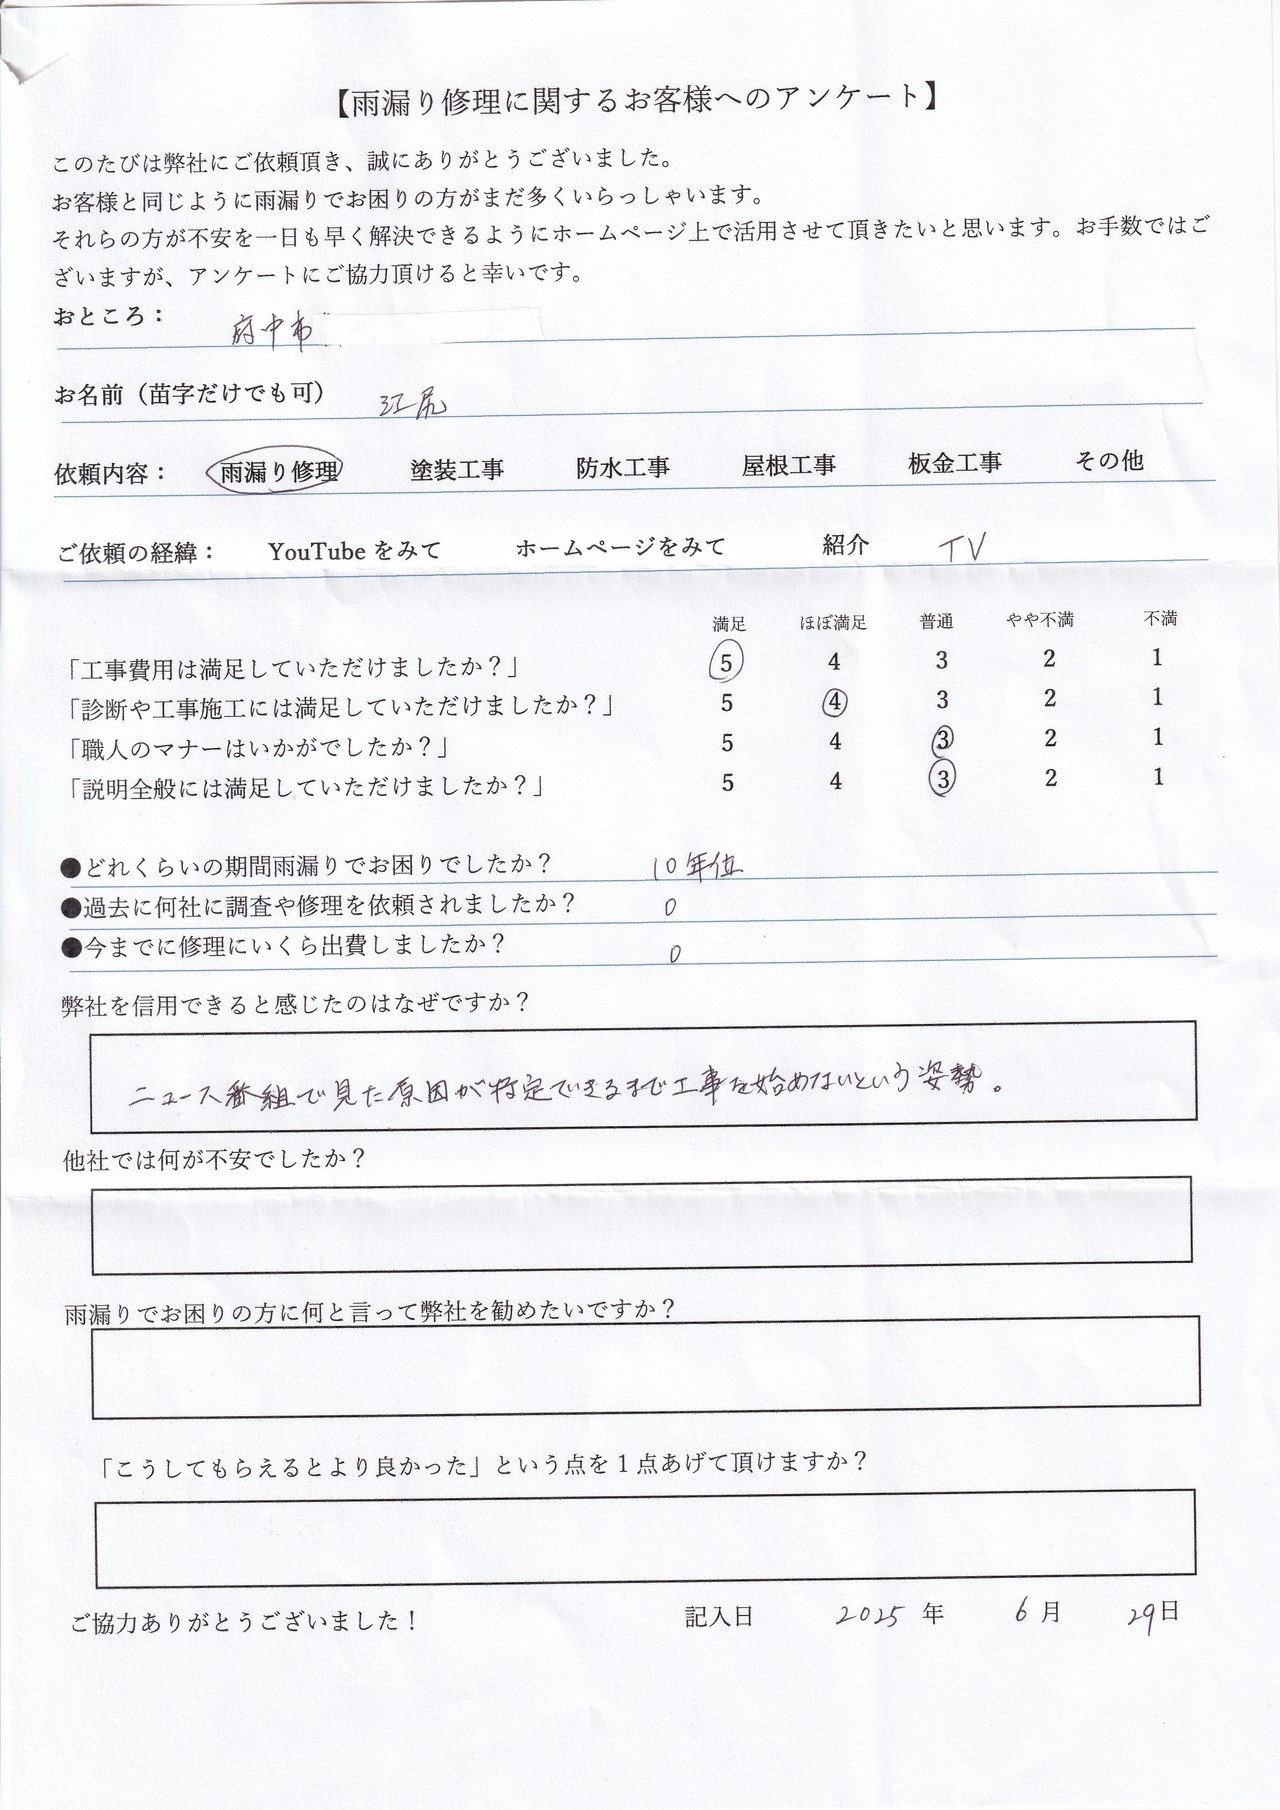 【雨漏り修理に関するお客様へのアンケート】
このたびは弊社にご依頼頂き、誠にありがとうございました。
お客様と同じように雨漏りでお困りの方がまだ多くいらっしゃいます。
それらの方が不安を一日も早く解決できるようにホームページ上で活用させて頂きたいと思います。お手数ではご
ざいますが、アンケートにご協力頂けると幸いです。
おところ： 府中市
お名前（苗字だけでも可） 江尻
依頼内容： 雨漏り修理 塗装工事 防水工事 屋根工事 板金工事 その他
ご依頼の経緯： YouTubeをみて ホームページをみて 紹介 TV
満足 ほぼ満足 普通 やや不満 不満
「工事費用は満足していただけましたか？」 5 4 3 2 1
「診断や工事施工には満足していただけましたか？」 5 4 3 2 1
「職人のマナーはいかがでしたか？」 5 4 3 2 1
「説明全般には満足していただけましたか？」 5 4 3 2 1
●どれくらいの期間雨漏りでお困りでしたか？ 10年位
●過去に何社に調査や修理を依頼されましたか？ 0
●今までに修理にいくら出費しましたか？ 0
弊社を信用できると感じたのはなぜですか？
ニュース番組で見た原因が特定できるまで工事を始めないという姿勢。
他社では何が不安でしたか？
雨漏りでお困りの方に何と言って弊社を勧めたいですか？
「こうしてもらえるとより良かった」という点を１点あげて頂けますか？
ご協力ありがとうございました！ 記入日 2025 年 6 月 29日